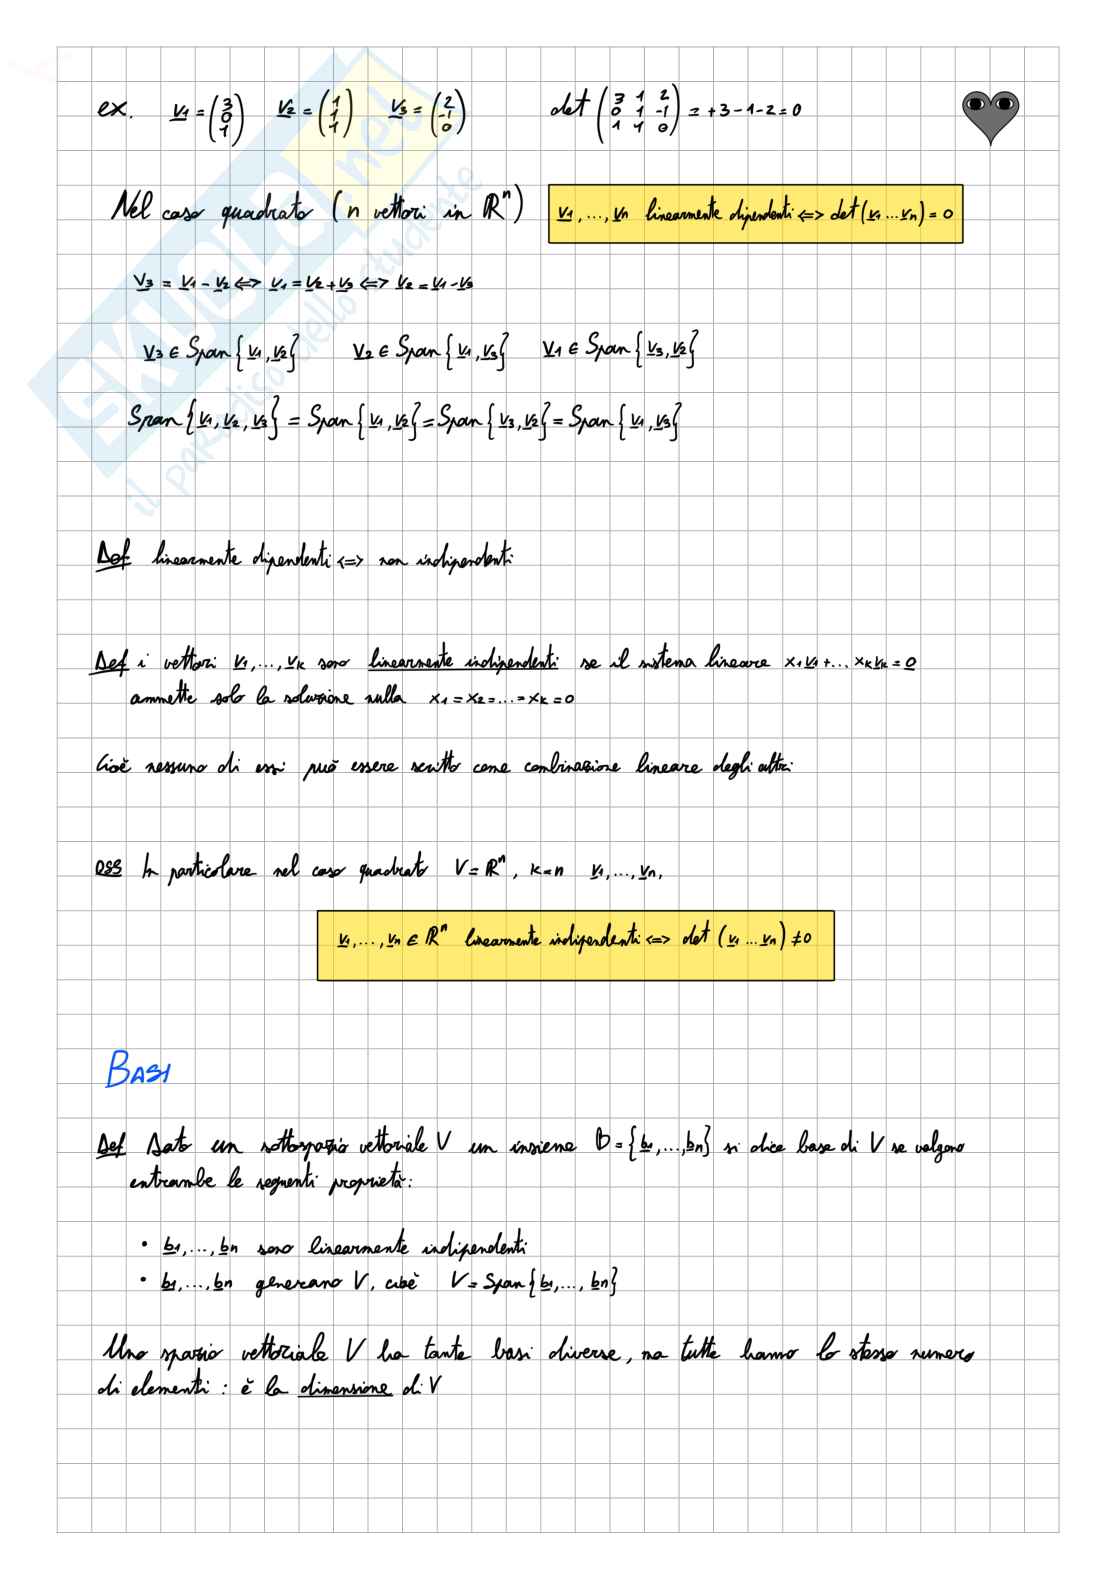 ex. v1 = (3 0 1) v2 = (1 1 1) v3 = (2 -1 0) det (3 1 2 0 1 -1 1 1 0) = +3-1-2=0
Nel caso quadrato (n vettori in ℝⁿ) v1, ..., vn linearmente dipendenti <=> det(v1 ... vn) = 0
v3 = v1 - v2 <=> v1 = v2 + v3 <=> v2 = v1 - v3
v3 ∈ Span{v1, v2} v2 ∈ Span{v1, v3} v1 ∈ Span{v3, v2}
Span{v1, v2, v3} = Span{v1, v2} = Span{v3, v2} = Span{v1, v3}
Def linearmente dipendenti <=> non indipendenti
Def i vettori v1, ..., vk sono linearmente indipendenti se il sistema lineare x1v1 + ... xkvk = 0
ammette solo la soluzione nulla x1 = x2 = ... = xk = 0
Cioè nessuno di essi può essere scritto come combinazione lineare degli altri
OSS In particolare nel caso quadrato V = ℝⁿ, k=n v1, ..., vn,
v1, ..., vn ∈ ℝⁿ linearmente indipendenti <=> det (v1 ... vn) ≠ 0
BASI
Def Dato un sottospazio vettoriale V un insieme B = {b1, ..., bn} si dice base di V se valgono
entrambe le seguenti proprietà:
• b1, ..., bn sono linearmente indipendenti
• b1, ..., bn generano V, cioè V = Span{b1, ..., bn}
Uno spazio vettoriale V ha tante basi diverse, ma tutte hanno lo stesso numero
di elementi: è la dimensione di V
SKUOLA.net
il paradiso dello studente